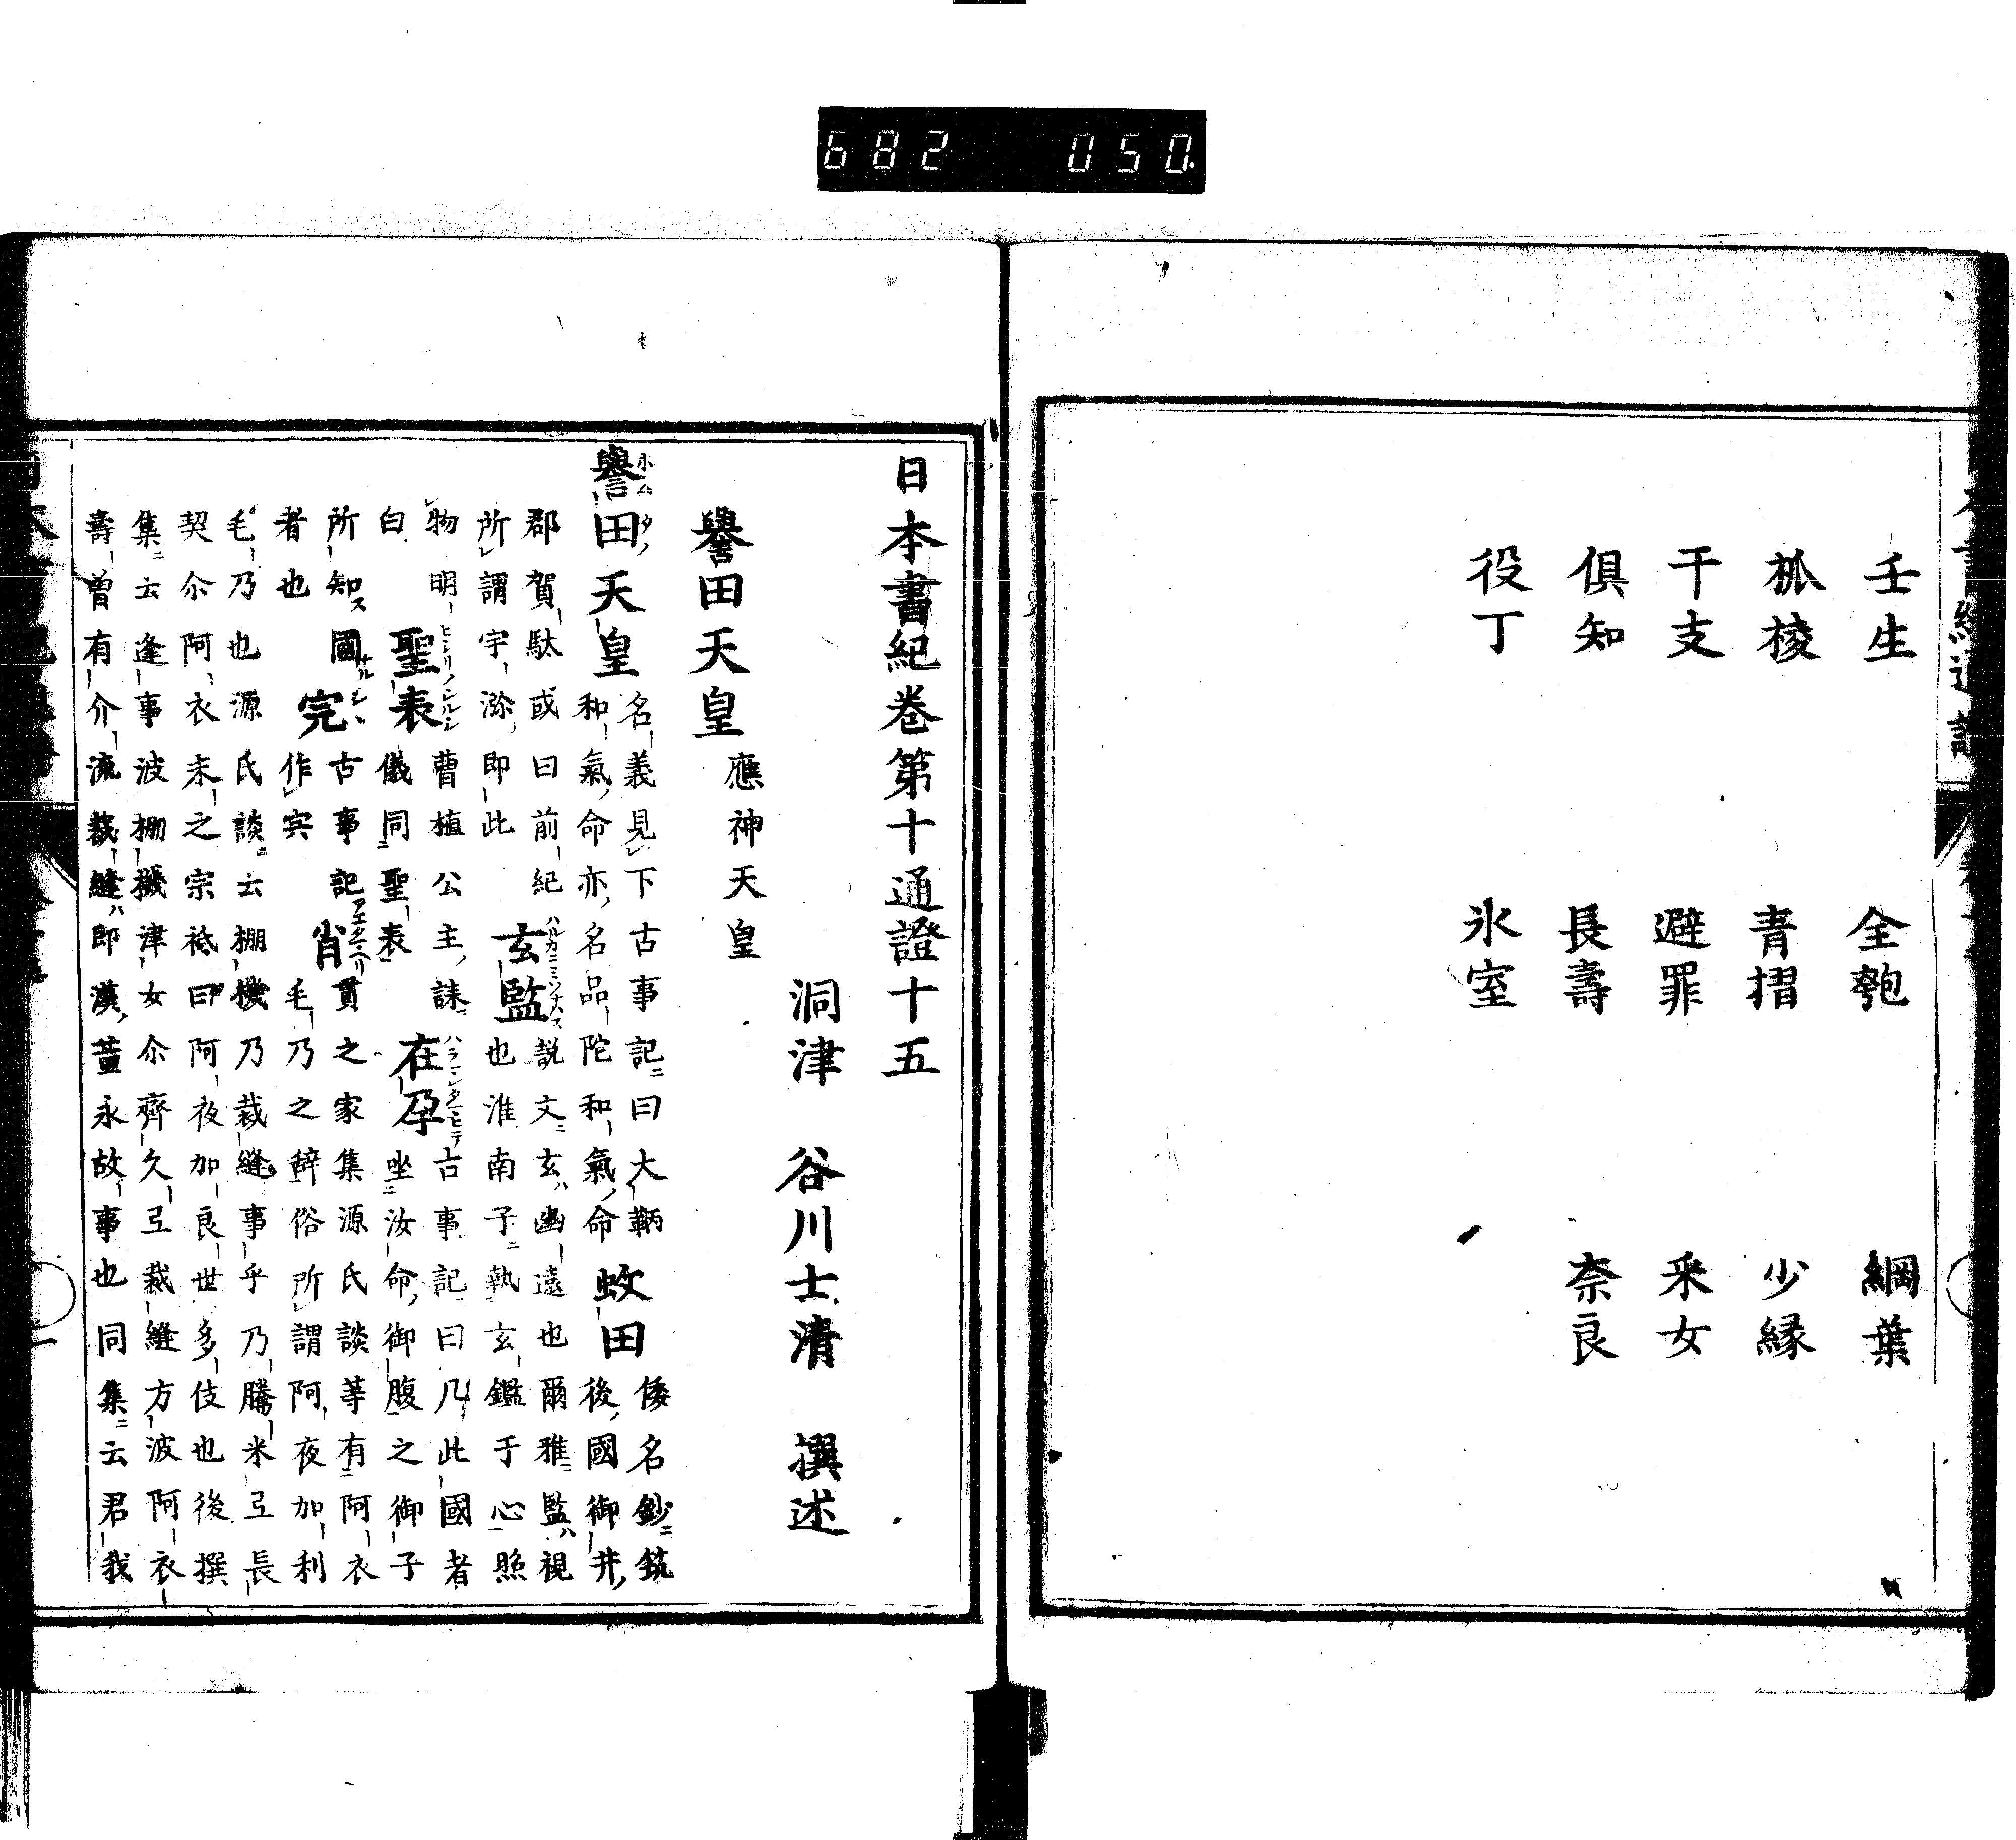 壬生　全匏　綱葉
柧棱　青摺　少縁
干支　避罪　采女
俱知　長壽　奈良
役丁　氷室
日本書紀卷第十通證十五
洞津　谷川士清　撰述
譽田天皇 應神天皇
譽田天皇 名義見下古事記曰大鞆和氣命亦名品陀和氣命 蚊田 倭名鈔筑後國御井
郡賀駄或曰前紀所謂宇瀰即此 玄監 說文玄幽遠也爾雅監視也淮南子執玄鑑于心照
物明白 聖表 曹植公主誄儀同聖表 在孕 古事記曰凡此國者坐汝命御腹之御子
所知國者也 完 古事記作宍 肖 貫之家集源氏談等有阿衣毛乃之辭俗所謂阿夜加利
毛乃也源氏談云棚機乃裁縫事乎乃騰米弖長
契尒阿衣末之宗祗曰阿夜加良世多伎也後撰
集云逢事波棚機津女尒齊久弖裁縫方波阿衣
壽曾有介流裁縫即漢董永故事也同集云君我